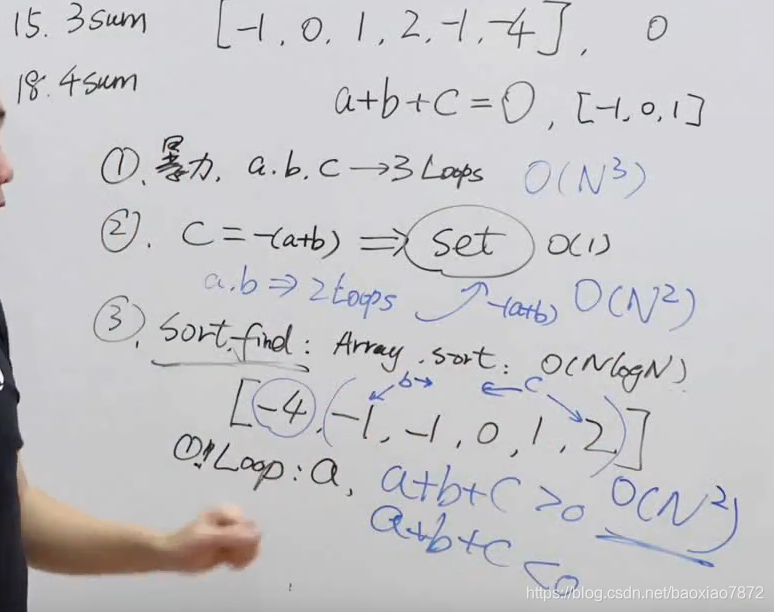 15. 3sum [-1, 0, 1, 2, -1, -4], 0
18. 4sum
a+b+c=0, [-1, 0, 1]
①. 暴力, a.b.c→3 Loops O(N³)
②. C=-(a+b) ⇒ set O(1)
a.b⇒2Loops -(a+b) O(N²)
③. sort.find: Array.sort: O(NlogN)
b→ ←c
[-4, (-1, -1, 0, 1, 2)]
①! Loop: a, a+b+c>0 O(N²)
a+b+c<0
https://blog.csdn.net/baoxiao7872